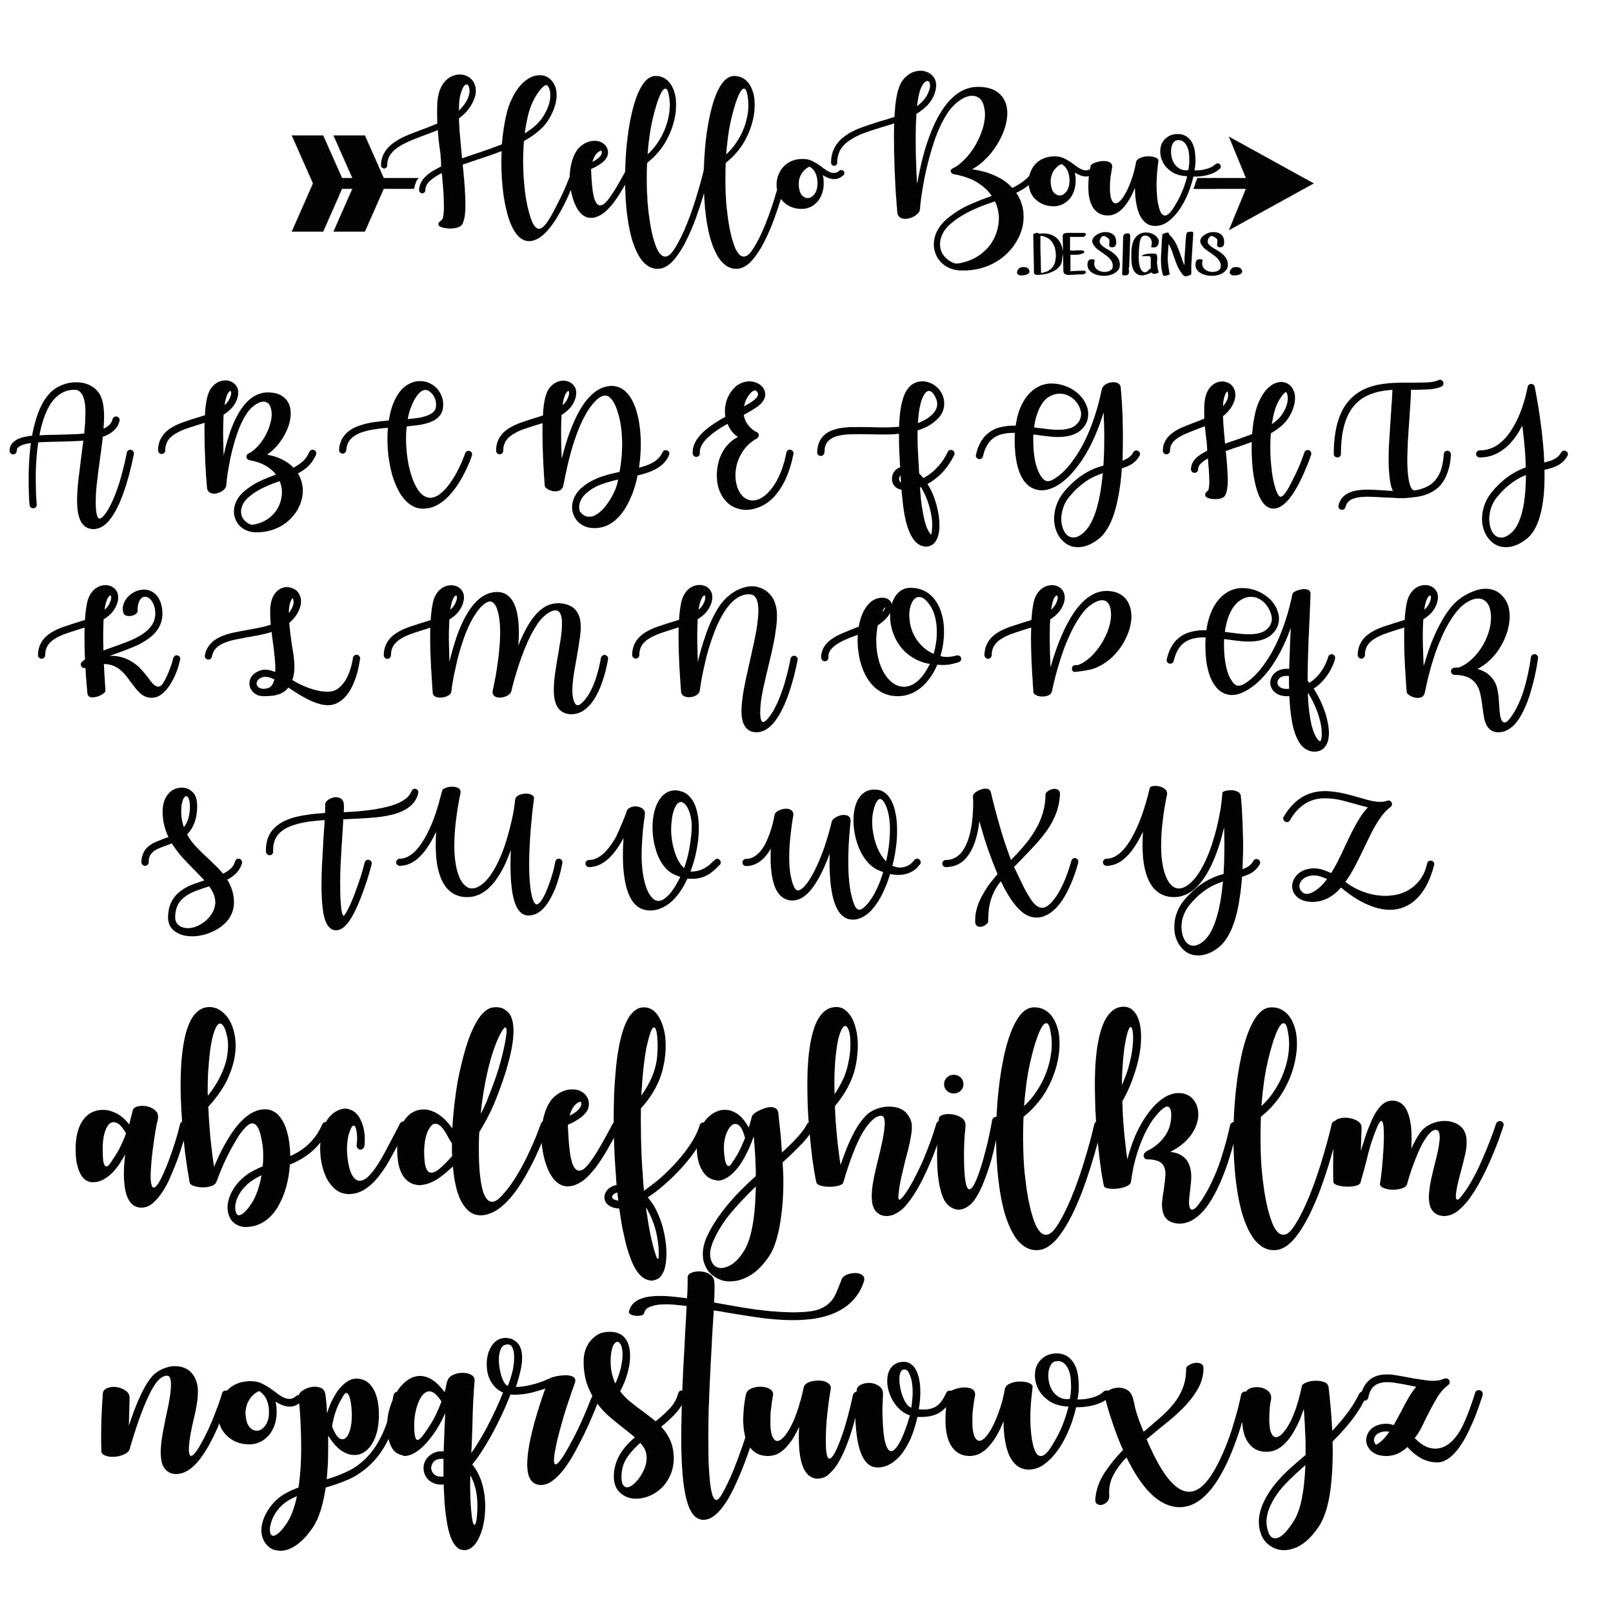 Hello Bow
.DESIGNS.
A B C D E F G H I J
K L M N O P Q R
S T U V W X Y Z
abcdefghilklm
nopqrstuvwxyz